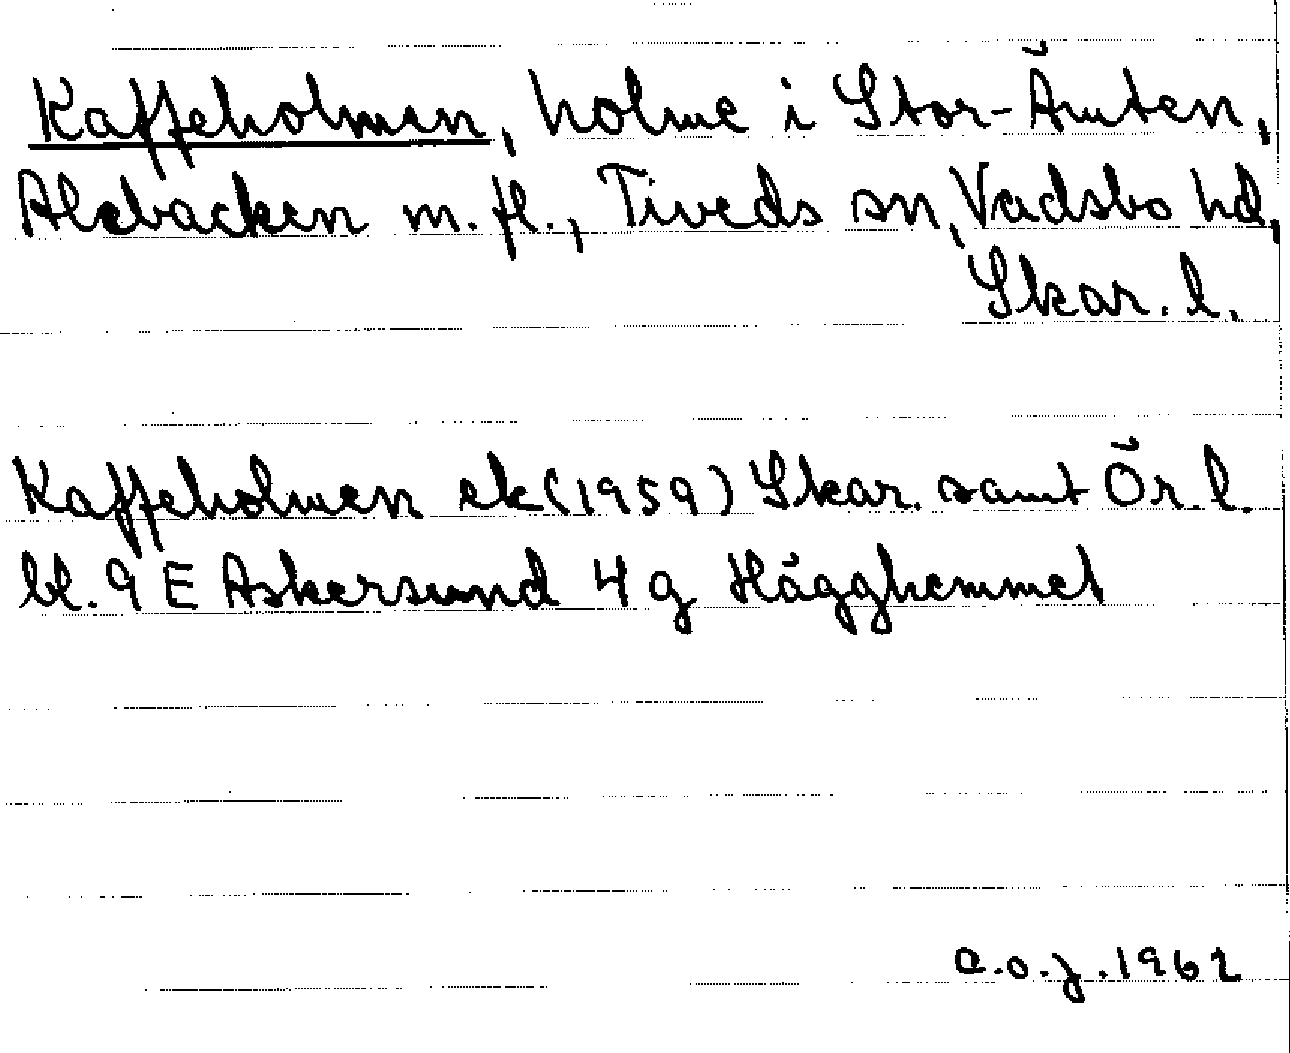 Kaffeholmen, holme i Stor-Ämten,
Alebacken m.fl., Tiveds sn, Vadsbo hd,
Skar. l.
Kaffeholmen ek (1959) Skar. samt Ör. l.
bl. 9 E Askersund 4 g Hägghemmet
C.O.J. 1962